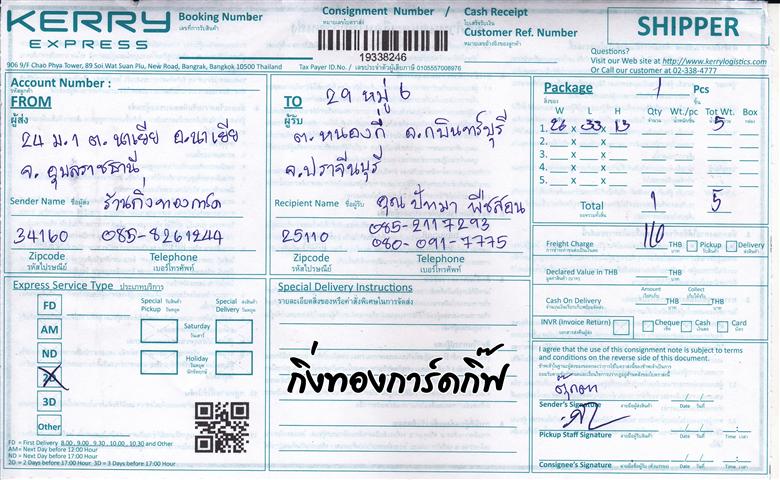 KERRY
EXPRESS
Booking Number
เลขที่การรับสินค้า
Consignment Number /
หมายเลขใบตราส่ง
Cash Receipt
ใบเสร็จรับเงิน
Customer Ref. Number
หมายเลขอ้างอิงของลูกค้า
19338246
SHIPPER
906 9/F Chao Phya Tower, 89 Soi Wat Suan Plu, New Road, Bangrak, Bangkok 10500 Thailand
Tax Payer ID.No. / เลขประจำตัวผู้เสียภาษี 0105557008976
Questions?
Visit our Web site at http://www.kerrylogistics.com
Or Call our customer at 02-338-4777
Account Number :
รหัสลูกค้า
FROM
ผู้ส่ง
24 ม.1 ต.นาเยีย อ.นาเยีย
จ.อุบลราชธานี
Sender Name ชื่อผู้ส่ง ร้านกิ่งทองการ์ด
34160 085-8261244
Zipcode Telephone
รหัสไปรษณีย์ เบอร์โทรศัพท์
TO
ผู้รับ
29 หมู่ 6
ต.หนองกี่ อ.กบินทร์บุรี
จ.ปราจีนบุรี
Recipient Name ชื่อผู้รับ คุณ ปัทมา พืชสอน
085-2117293
25110 080-091-7775
Zipcode Telephone
รหัสไปรษณีย์ เบอร์โทรศัพท์
Package 1 Pcs
สิ่งของ ชิ้น
W L H Qty Wt./pc Tot Wt. Box
1. 26 x 33 x 13 5
2. x x
3. x x
4. x x
5. x x
Total 1 5
Freight Charge 110 THB Pickup Delivery
Declared Value in THB THB
มูลค่าสินค้า (บาท) บาท
Amount Collect
Cash On Delivery THB THB
INVR (Invoice Return) Cheque Cash Card
เช็ค เงินสด บัตร
I agree that the use of this consignment note is subject to terms
and conditions on the reverse side of this document.
Sender's Signature ลายมือชื่อผู้ส่งสินค้า Date วันที่
Pickup Staff Signature Date วันที่ Time เวลา
Consignee's Signature Date วันที่ Time เวลา
Express Service Type ประเภทบริการ
FD
AM
ND
2D
3D
Other
Special Pickup
รับสินค้า วันหยุด
Special Delivery
ส่งสินค้า วันหยุด
Saturday
วันเสาร์
Holiday
วันหยุด
นักขัตฤกษ์
FD = First Delivery 8.00 , 9.00 , 9.30 , 10.00 , 10.30 and Other
AM= Next Day before 12:00 Hour
ND = Next Day before 17:00 Hour
2D = 2 Days before 17:00 Hour 3D = 3 Days before 17:00 Hour
Special Delivery Instructions
รายละเอียดสิ่งของหรือคำสั่งพิเศษในการจัดส่ง
กิ่งทองการ์ดกิ๊ฟ